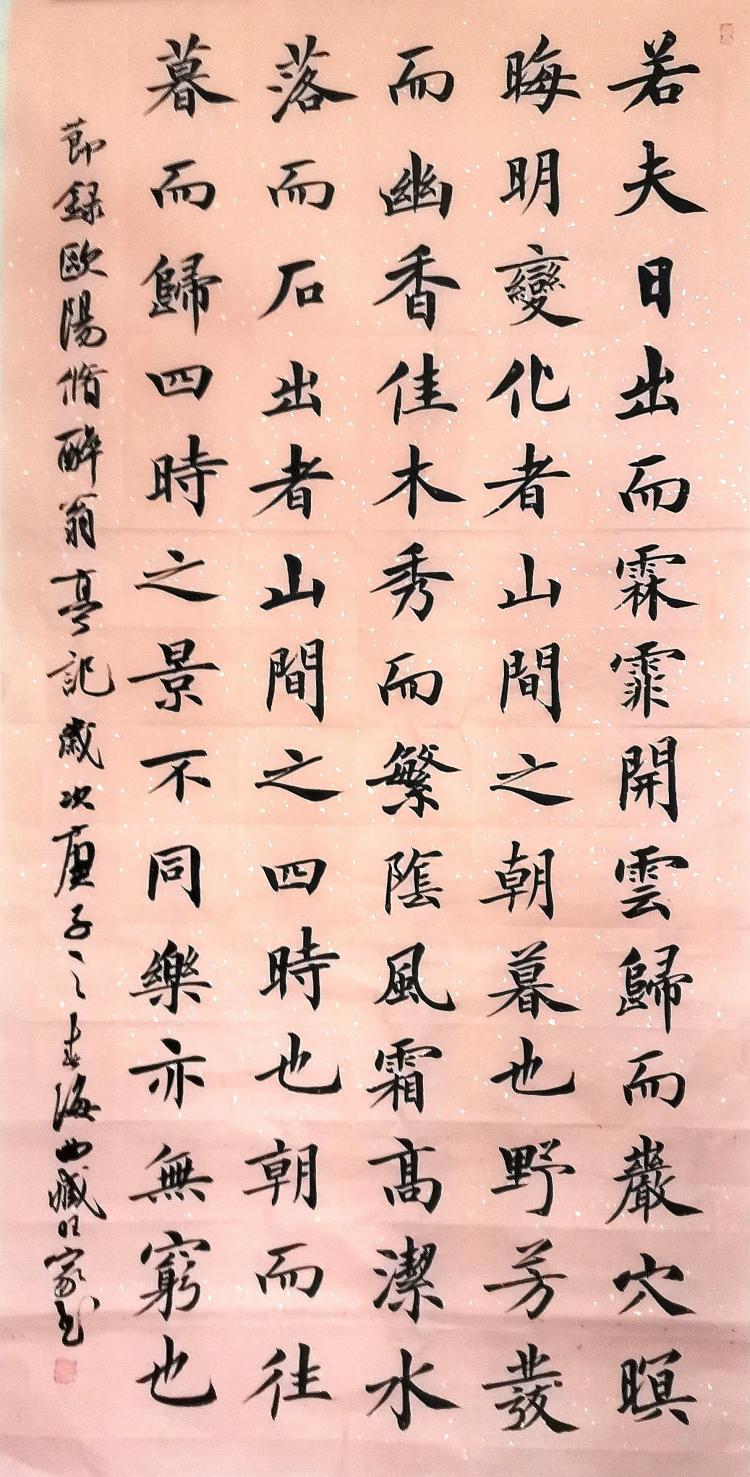 若夫日出而霖霏開雲歸而巖穴暝
晦明變化者山間之朝暮也野芳發
而幽香佳木秀而繁蔭風霜高潔水
落而石出者山間之四時也朝而往
暮而歸四時之景不同樂亦無窮也
節録歐陽脩醉翁亭記歲次庚子之春海曲臧旺家书